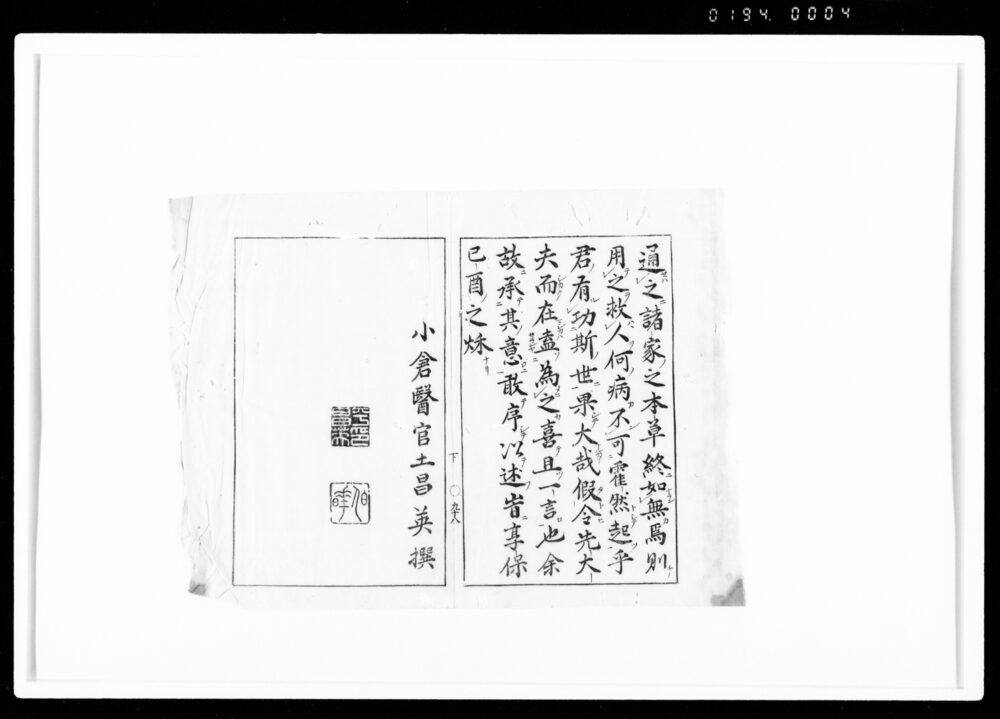 0194. 0004
通之諸家之本草終如無焉則
用之救人何病不可霍然起乎
君有功斯世果大哉假令先大
夫而在盍為之喜且一言也余
故承其意敢序以述旹享保
己酉之秌
下 〇九八
小倉醫官土昌英撰